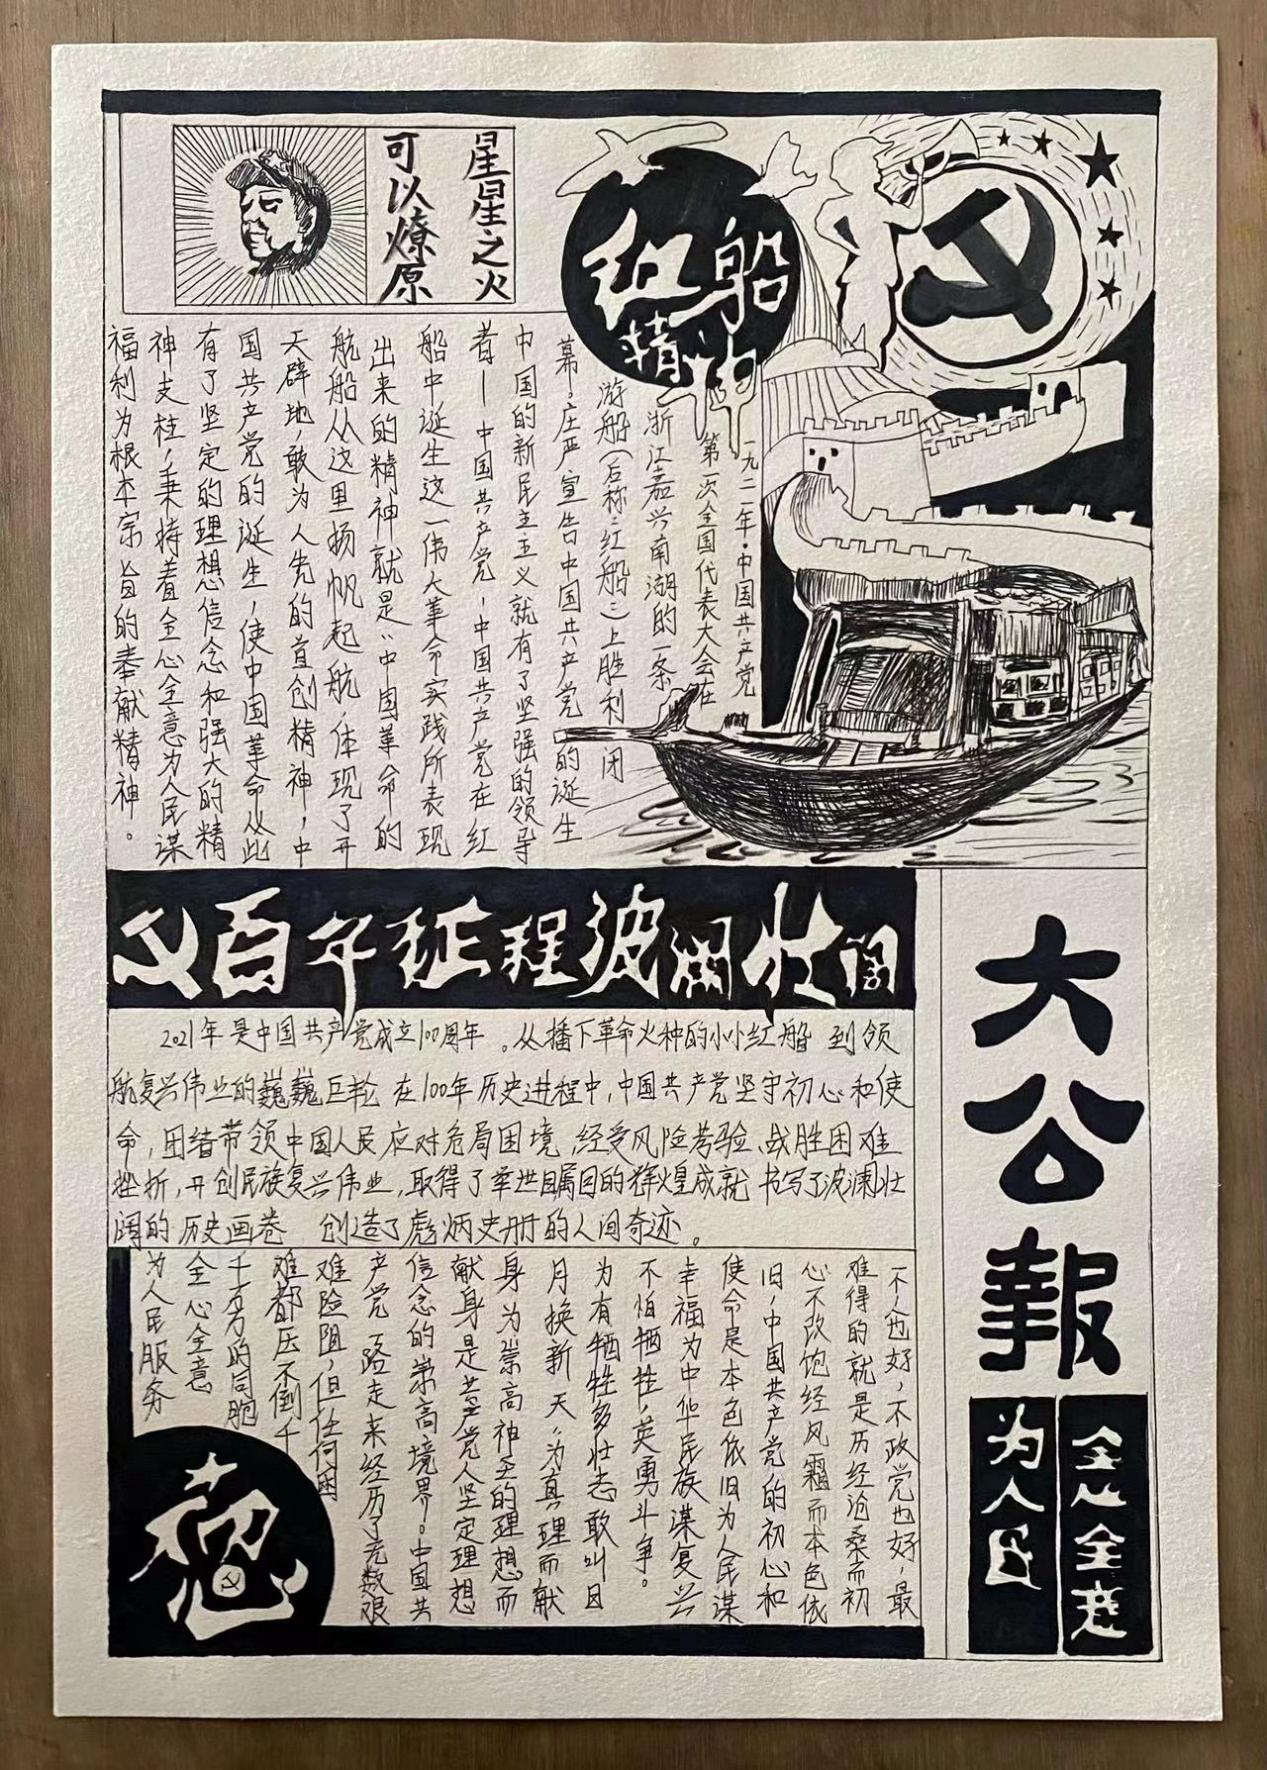 星星之火
可以燎原
红船
精神
一九二一年·中国共产党
第一次全国代表大会在
浙江嘉兴南湖的一条
游船(后称:红船:)上胜利闭
幕。庄严宣告中国共产党的诞生
中国的新民主主义就有了坚强的领导
者—中国共产党,中国共产党在红
船中诞生这一伟大革命实践所表现
出来的精神就是"中国革命的
航船从这里扬帆起航,体现了开
天辟地,敢为人先的首创精神,中
国共产党的诞生,使中国革命从此
有了坚定的理想信念和强大的精
神支柱,秉持着全心全意为人民谋
福利为根本宗旨的奉献精神。
百年征程波澜壮阔
2021年是中国共产党成立100周年。从播下革命火种的小小红船 到领
航复兴伟业的巍巍巨轮 在100年历史进程中,中国共产党坚守初心和使
命,团结带领中国人民应对危局困境,经受风险考验、战胜困难
挫折,开创民族复兴伟业,取得了举世瞩目的辉煌成就 书写了波澜壮
阔的历史画卷 创造了彪炳史册的人间奇迹。
大公報
全心全意
为人民
一个也好,一个政党也好,最
难得的就是历经沧桑而初
心不改饱经风霜而本色依
旧,中国共产党的初心和
使命是本色依旧为人民谋
幸福为中华民族谋复兴
不怕牺牲,英勇斗争。
为有牺牲多壮志敢叫日
月换新天"为真理而献
身为崇高神圣的理想而
献身是共产党人坚定理想
信念的崇高境界。中国共
产党一路走来经历了无数艰
难险阻,但任何困
难都压不倒千
千万万的同胞
全心全意
为人民服务
初心